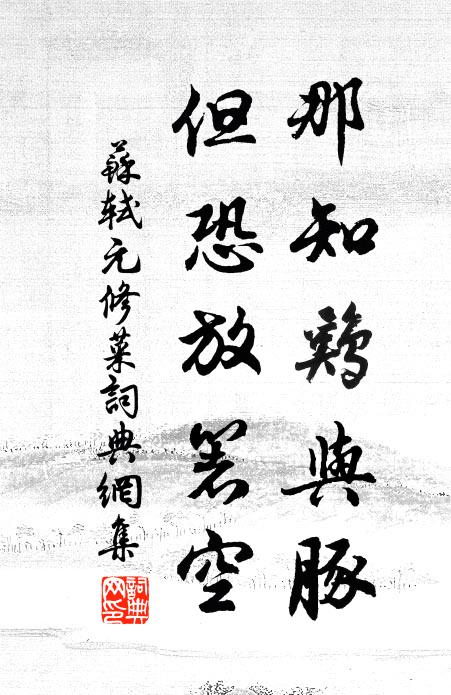 那知鷄與豚
但恐放箸空
蘇軾元修菜詞典網集
詞典網印